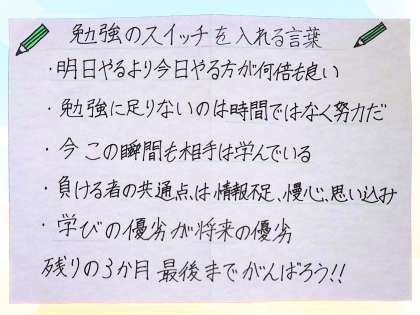 勉強のスイッチを入れる言葉
・明日やるより今日やる方が何倍も良い
・勉強に足りないのは時間ではなく努力だ
・今この瞬間も相手は学んでいる
・負ける者の共通点は情報不足、慢心、思い込み
・学びの優劣が将来の優劣
残りの3か月 最後までがんばろう!!